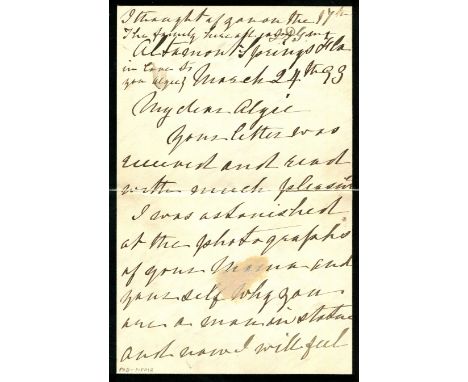 I thought of you on the 17th
The family here all join
Altamont Springs Fla
in love to
you algie
March 24th 93
My dear Algie
Your letter was
received and read
with much pleasure
I was astonished
at the photographs
of your Mama and
yourself Why you
are a man in stature
and now I will feel